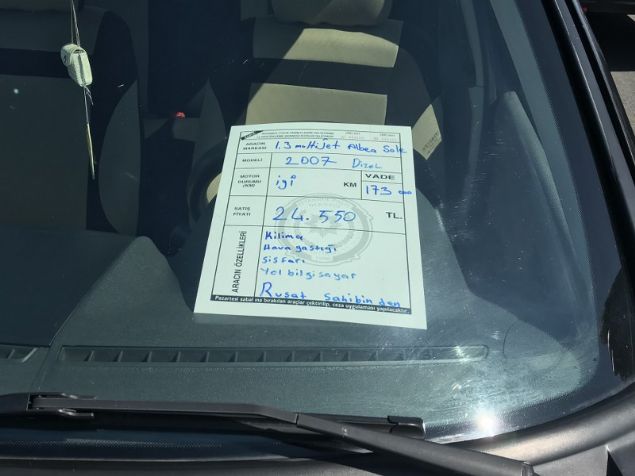 ARACIN MARKASI 1.3 multijet Albea Sole
MODELİ 2007 Dizel
MOTOR DURUMU (KM) iyi KM VADE 173 000
SATIŞ FİYATI 24.550 TL.
ARACIN ÖZELLİKLERİ
Kilima
Hava yastığı
Sis farı
Yol bilgisayar
Rusat Sahibin den
Pazartesi sabahına bırakılan araçlar çektirilip, ceza uygulaması yapılacaktır.